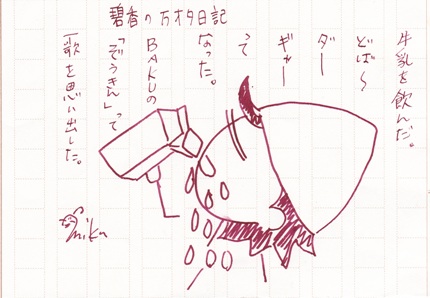 碧香の万オタ日記
牛乳を飲んだ。
どば〜
ダー
ギャー
って
なった。
BAKUの
「ぞうきん」って
歌を思い出した。
mika